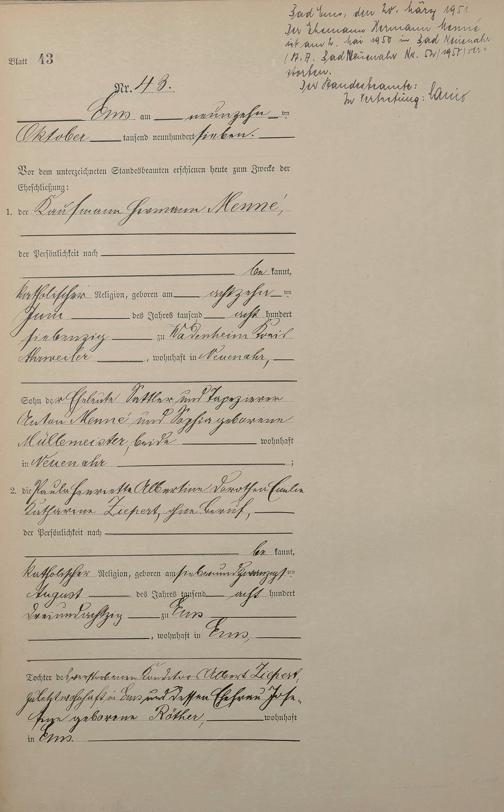 Bad Ems, den 20. März 1951.
Der Ehemann Hermann Menné
ist am 6. Mai 1950 in Bad Neuenahr
(St. A. Bad Neuenahr Nr. 52/1950) ver-
storben.
Der Standesbeamte:
In Vertretung:
Blatt 43
Nr. 43.
Ems am neunzehn ten
Oktober tausend neunhundert sieben.
Vor dem unterzeichneten Standesbeamten erschienen heute zum Zwecke der
Eheschließung:
1. der Kaufmann Hermann Menné,
der Persönlichkeit nach
be kannt,
katholischer Religion, geboren am achtzehn ten
Juni des Jahres tausend acht hundert
siebenzig zu Wadenheim Kreis
Ahrweiler, wohnhaft in Neuenahr,
Sohn der Eheleute Sattler und Tapezierer
Anton Menné und Sophia geborene
Müllmeister, beide wohnhaft
in Neuenahr;
2. die Paula Henriette Albertine Dorothea Emilie
Katharine Liepert, ohne Beruf,
der Persönlichkeit nach
be kannt,
katholischer Religion, geboren am siebenundzwanzigsten
August des Jahres tausend acht hundert
dreiundachtzig zu Ems
, wohnhaft in Ems,
Tochter des verstorbenen Konditors Albert Liepert,
zuletzt wohnhaft in Ems und dessen Ehefrau Jose-
fine geborene Röther, wohnhaft
in Ems.